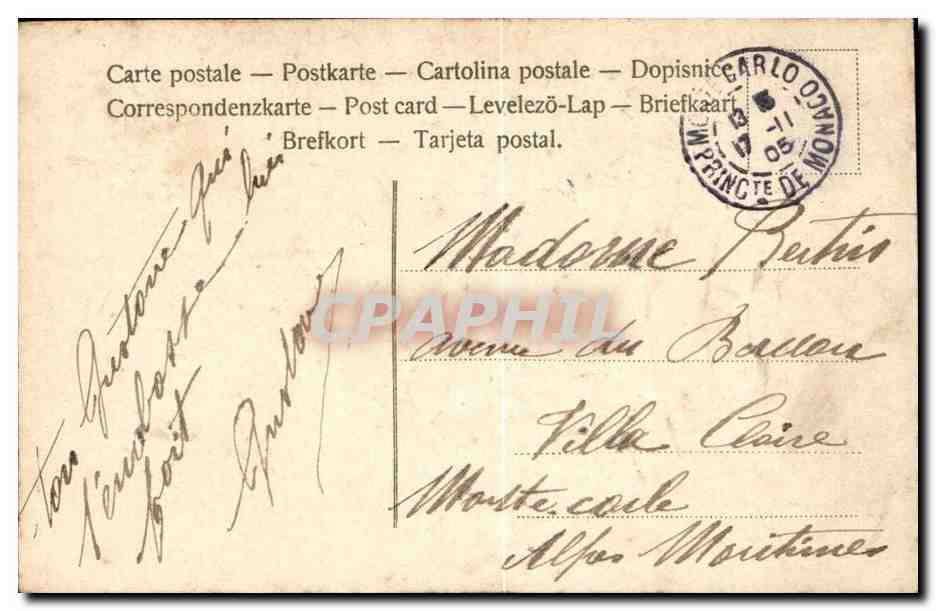 Carte postale — Postkarte — Cartolina postale — Dopisnice
Correspondenzkarte — Post card — Levelezö-Lap — Briefkaart
Brefkort — Tarjeta postal.
CARLO
PRINCTE DE MONACO
13
17 -11
05
ton Gustave qui
t'embrasse bien
fort
Gustave
Madame
avenue du
Villa Claire
Monte-carle
Alpes Maritimes
CPAPHIL